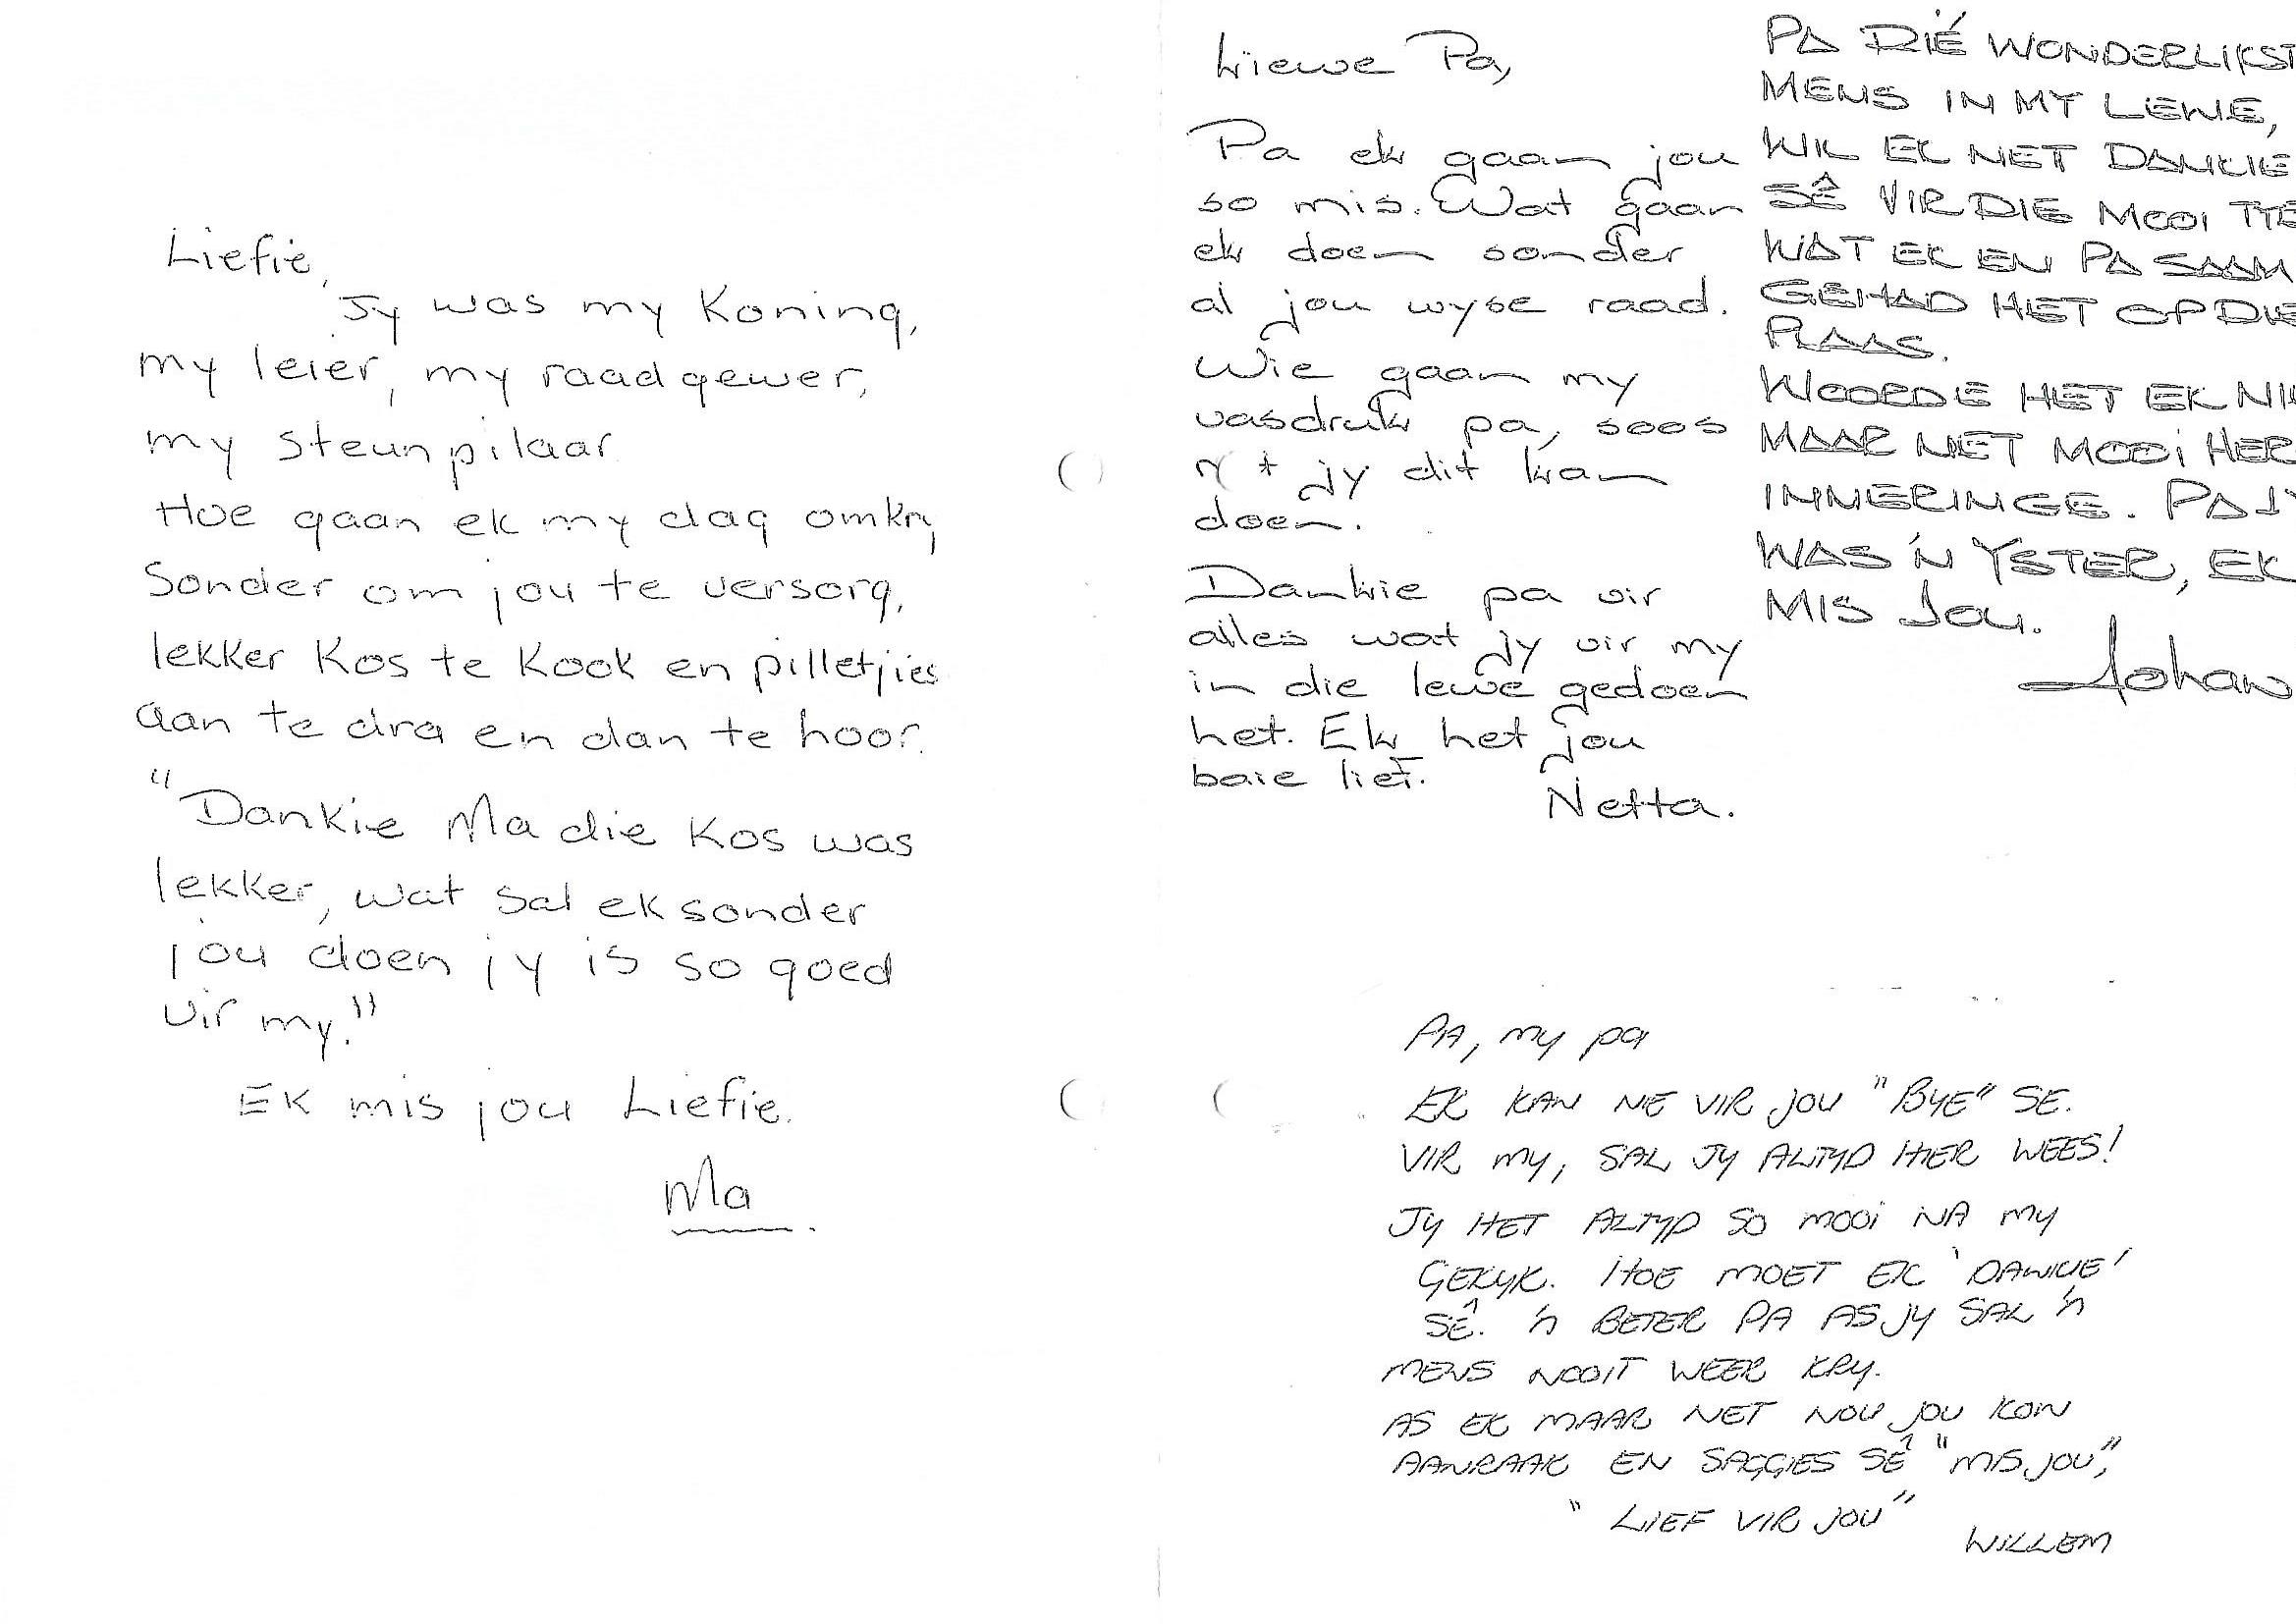 Liefie,
Jy was my Koning,
my leier, my raadgewer,
my steunpilaar
Hoe gaan ek my dag omkry
Sonder om jou te versorg,
lekker Kos te Kook en pilletjies
aan te dra en dan te hoor.
"Dankie Ma die Kos was
lekker, wat sal ek sonder
jou doen jy is so goed
vir my."
Ek mis jou Liefie.
Ma
Liewe Pa,
Pa ek gaan jou
so mis. Wat gaan
ek doen sonder
al jou wyse raad.
Wie gaan my
vasdruk pa, soos
jy dit kan
doen.
Dankie pa vir
alles wat jy vir my
in die lewe gedoen
het. Ek het jou
baie lief.
Netta.
PA DIÉ WONDERLIKST
MENS IN MY LEWE,
WIL EK NET DANKIE
SÊ VIR DIE MOOI TYE
WAT EK EN PA SAAM
GEHAD HET OP DIE
PLAAS.
WOORDE HET EK NIE
MAAR NET MOOI HER
INNERINGE. PA JY
WAS 'N YSTER, EK
MIS JOU.
Johan
PA, my pa
EK KAN NIE VIR JOU "BYE" SE.
VIR MY, SAL JY ALTYD HIER WEES!
JY HET ALTYD SO MOOI NA MY
GEKYK. HOE MOET EK 'DANKIE'
SÊ. 'n BETER PA AS JY SAL 'n
MENS NOOIT WEER KRY.
AS EK MAAR NET NOU JOU KON
AANRAAK EN SAGGIES SÊ "MIS JOU",
"LIEF VIR JOU"
WILLEM